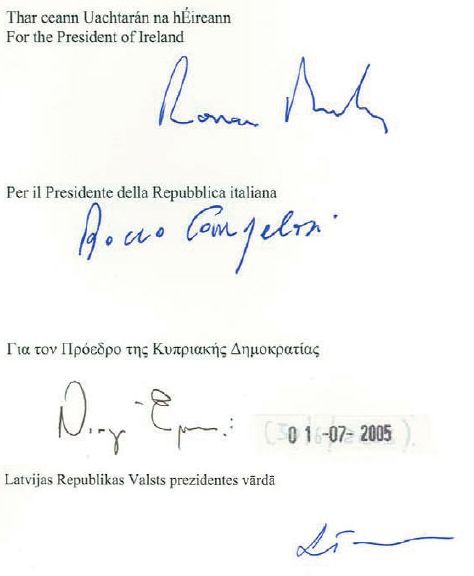 Thar ceann Uachtarán na hÉireann
For the President of Ireland
Per il Presidente della Repubblica italiana
Rocco Cangelosi
Για τον Πρόεδρο της Κυπριακής Δημοκρατίας
01-07-2005
Latvijas Republikas Valsts prezidentes vārdā